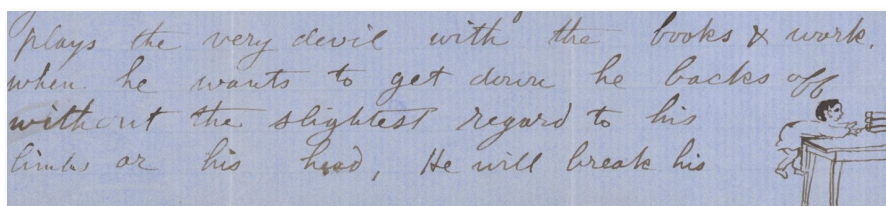 plays the very devil with the books & work.
when he wants to get down he backs off
without the slightest regard to his
limbs or his head, He will break his